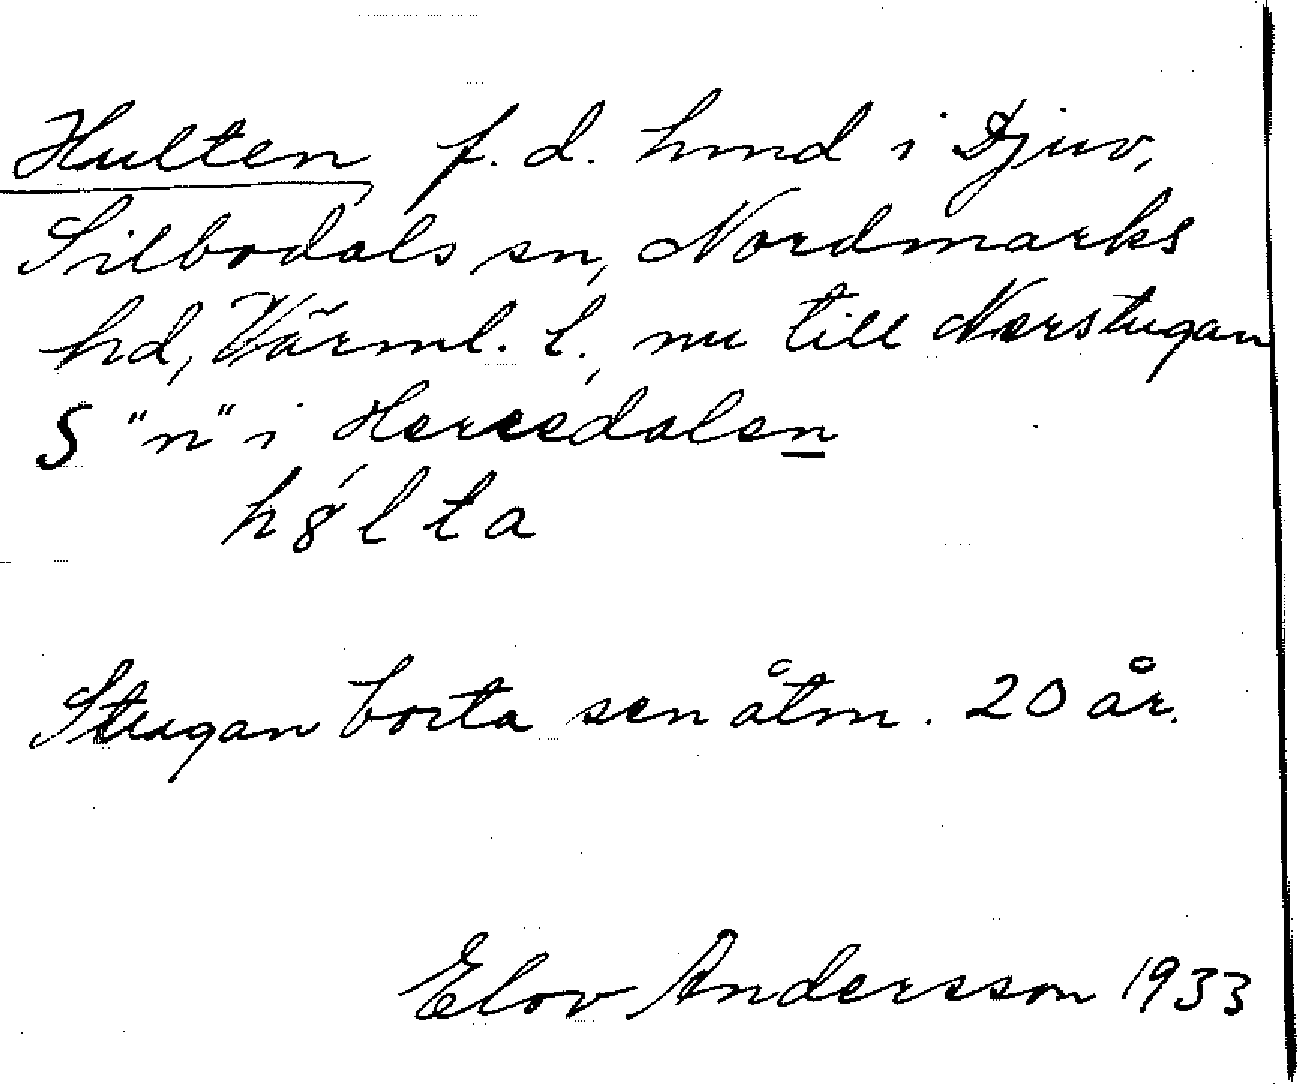 Hulten f. d. hmd i Djuv,
Silbodals sn, Nordmarks
hd, Värml. l., nu till Nerstugan
S "n" i Heresdalen
h8́lta
Stugan borta sen åtm. 20 år.
Elov Andersson 1933